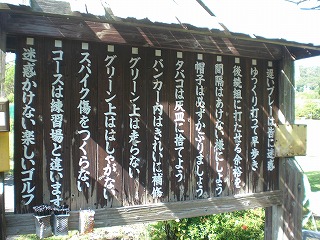 遅いプレーは皆に迷惑
ゆっくり打って早歩き
後続組に打たせる余裕を
間隔はあけない様にしよう
帽子は必ずかぶりましょう
タバコは灰皿に捨てよう
バンカー内はきれいに補修
グリーン上は走らない
グリーン上ははしゃがない
スパイク傷をつくらない
コースは練習場と違います
迷惑かけない楽しいゴルフ